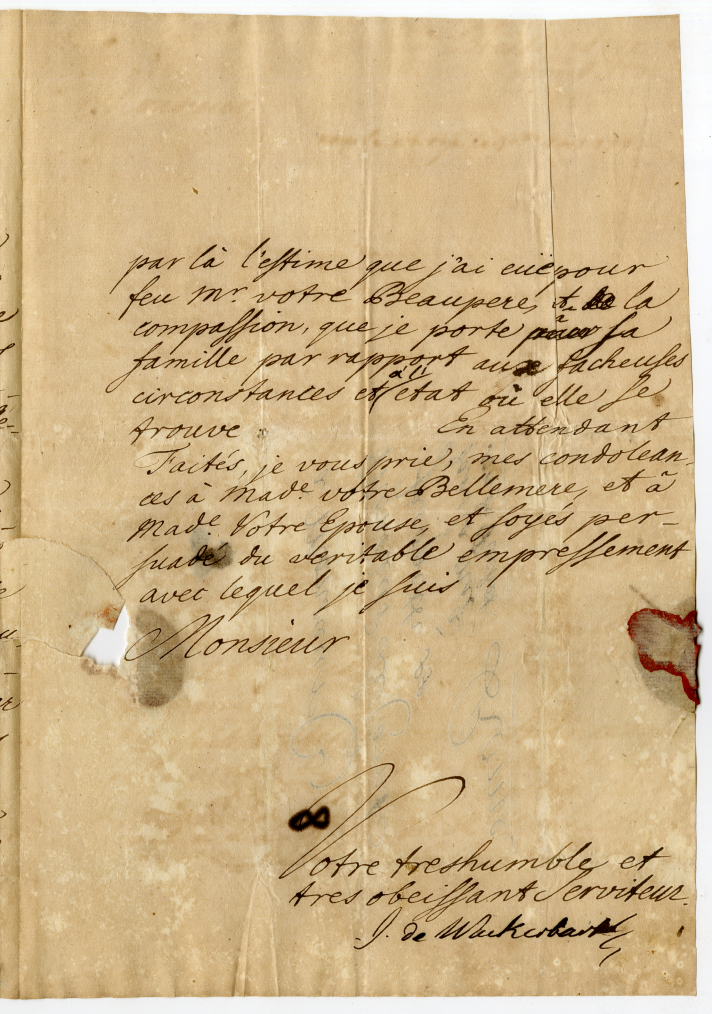 par là l'estime que j'ai eüe pour
feu Mr. votre Beaupere, & la
compassion, que je porte à sa
famille par rapport aux facheuses
circonstances et à l'état où elle se
trouve. En attendant
Faités, je vous prie, mes condolean-
ces à Made. votre Bellemere, et à
Made. Votre Epouse, et soyés per-
suadé du veritable empressement
avec lequel je suis
Monsieur
Votre treshumble et
tres obeissant Serviteur.
J. de Wackerbarth